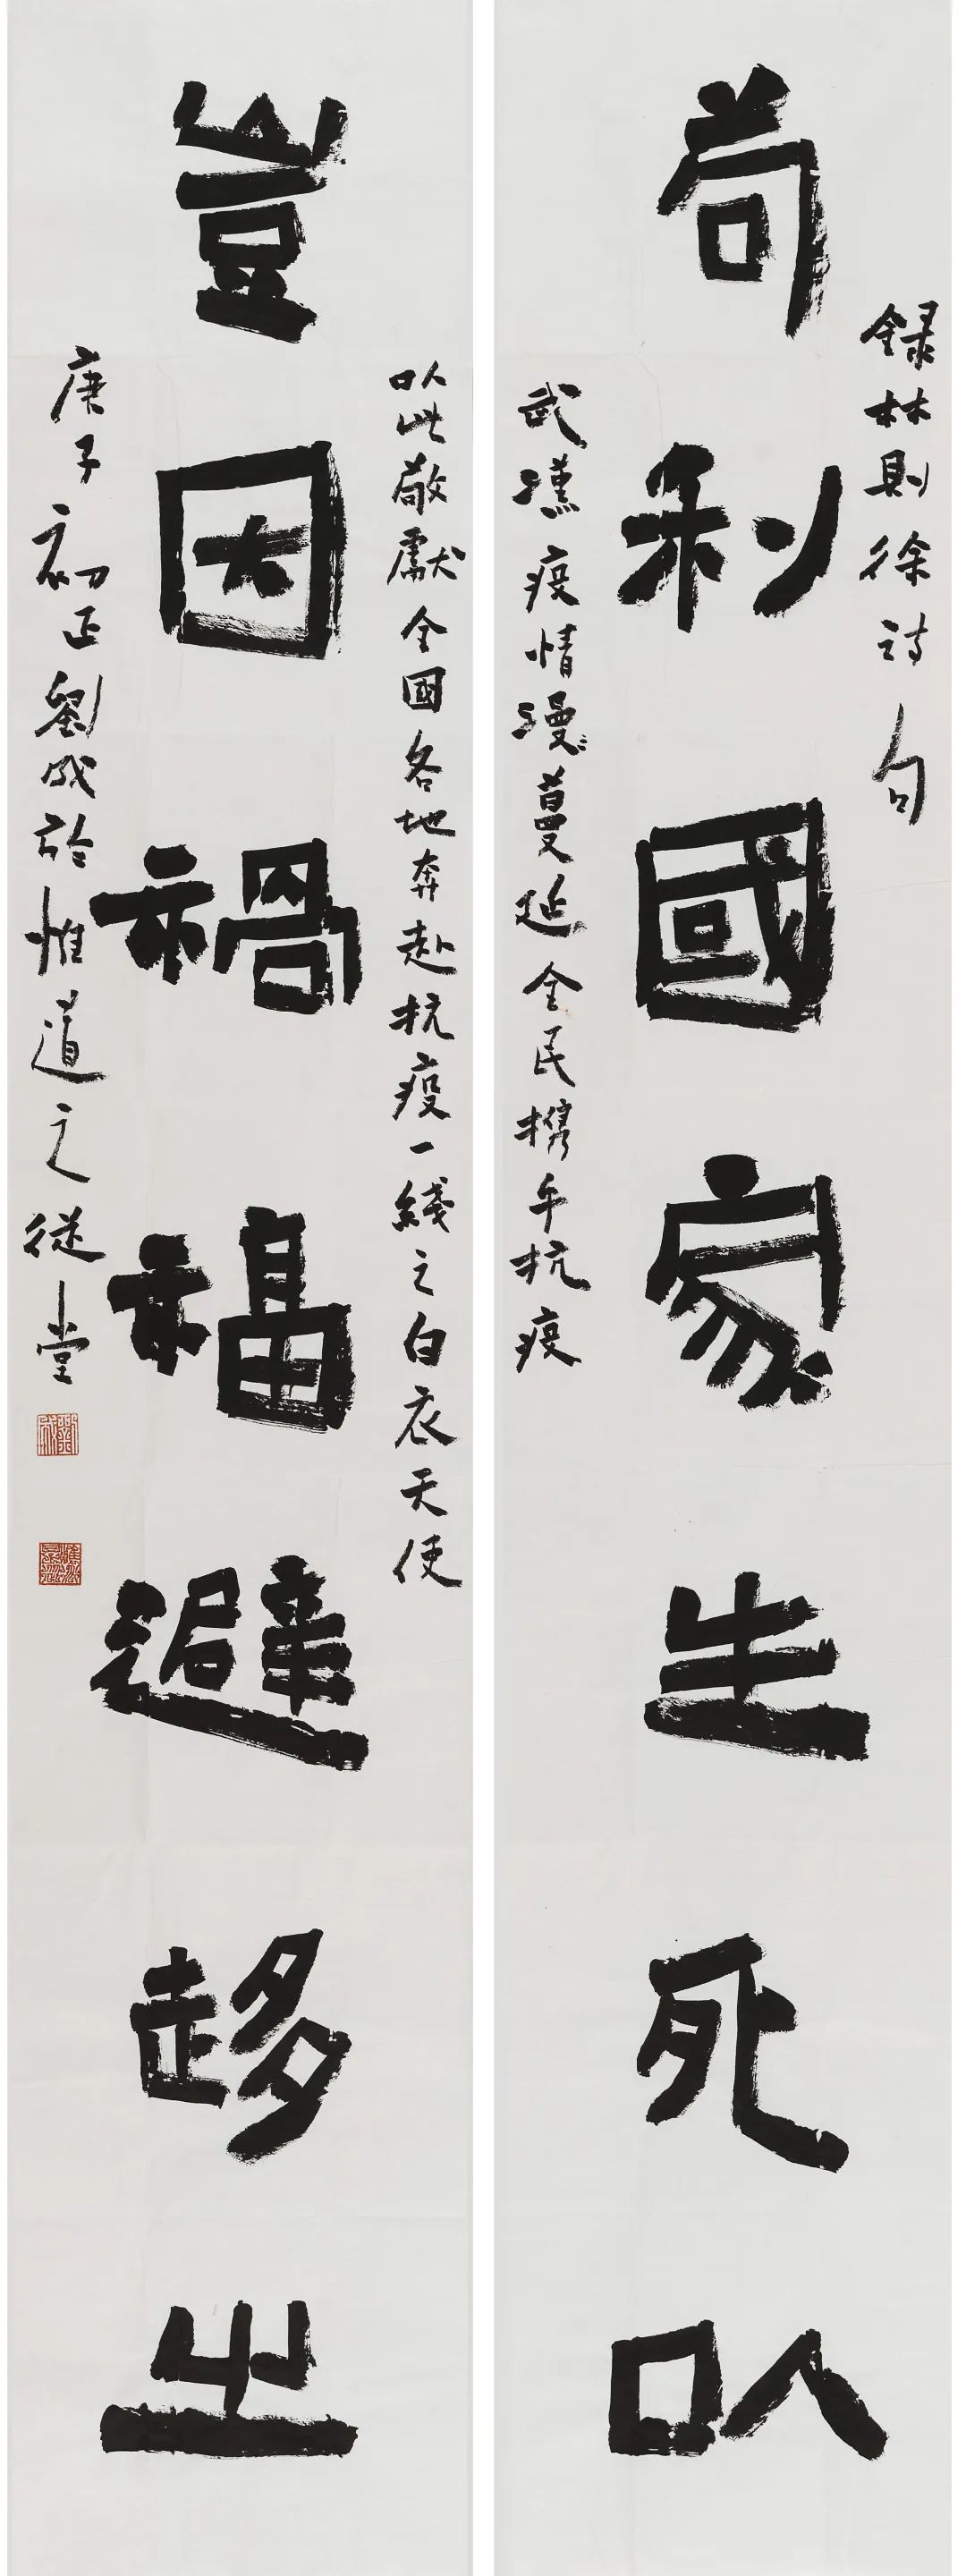 録林則徐詩句
苟利國家生死以
武漢疫情漫蔓延全民携手抗疫
以此敬獻全國各地奔赴抗疫一綫之白衣天使
豈因禍福避趍之
庚子初正劉成於惟道之從堂